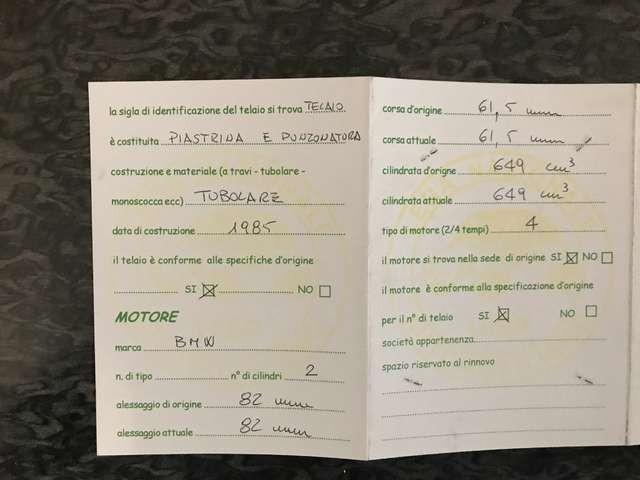 la sigla di identificazione del telaio si trova TELAIO
è costituita PIASTRINA E PUNZONATURA
costruzione e materiale (a travi - tubolare -
monoscocca ecc) TUBOLARE
data di costruzione 1985
il telaio è conforme alle specifiche d'origine
SI ☒ NO ☐
MOTORE
marca BMW
n. di tipo n° di cilindri 2
alessaggio di origine 82 mm
alessaggio attuale 82 mm
corsa d'origine 61,5 mm
corsa attuale 61,5 mm
cilindrata d'origne 649 cm³
cilindrata attuale 649 cm³
tipo di motore (2/4 tempi) 4
il motore si trova nella sede di origine SI ☒ NO ☐
il motore è conforme alla specificazione d'origine
per il n° di telaio SI ☒ NO ☐
società appartenenza
spazio riservato al rinnovo